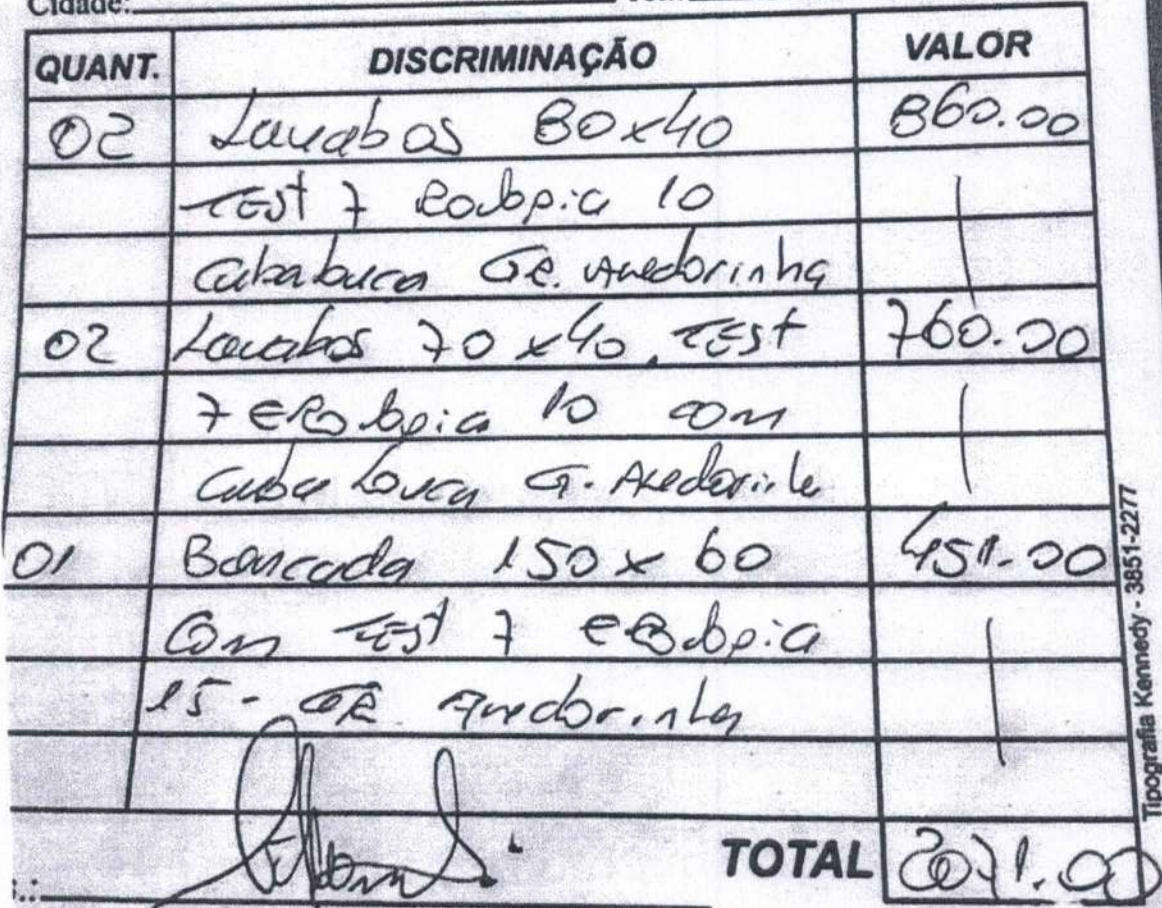 Cidade:
QUANT. DISCRIMINAÇÃO VALOR
02 Lavabos 80x40 860.00
TEST 7 Rodopia 10
Cuba Louca GR. Andorinha
02 Lavabos 70x40 TEST 760.00
7 E Rodopia 10 com
Cuba Louca G. Andorinha
01 Bancada 150x60 451.00
Com TEST 7 E Rodopia
15 - GR Andorinha
TOTAL 2071.00
Tipografia Kennedy - 3851-2277